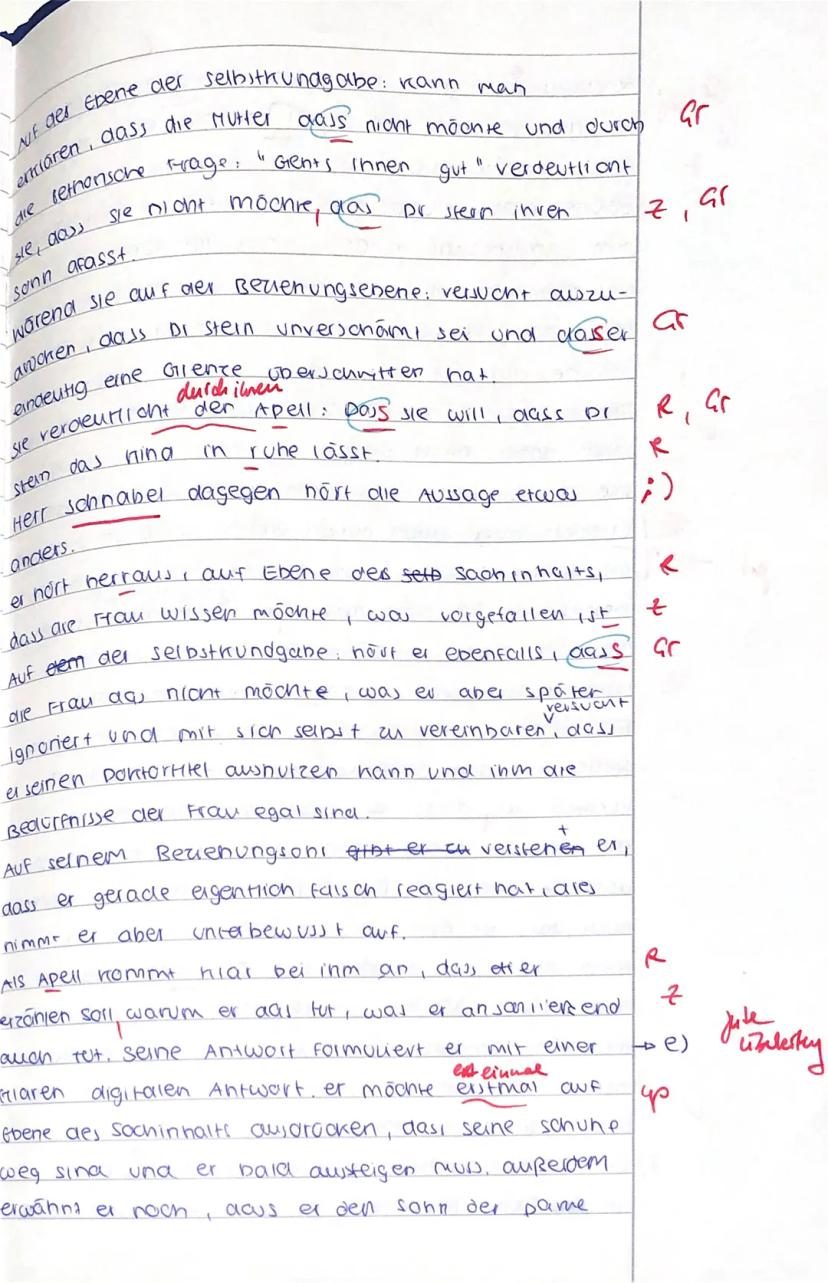 Auf der Ebene der Selbstkundgabe: kann man
erklären, dass die Mutter dass nicht möchte und durch Gr
die rethorische Frage: "Gehts Ihnen gut" verdeutlicht
sie, dass sie nicht möchte, das Dr Stein ihren Z, Gr
Sohn afasst.
wärend sie auf der Beziehungsebene: versucht auszu-
drücken, dass Dr Stein unverschämt sei und dasser Gr
eindeutig eine Grenze überschritten hat.
durch ihren
sie verdeutlicht der Apell: Dass sie will, dass Dr R, Gr
Stein das Kind in ruhe lässt. R
Herr Schnabel dagegen hört die Aussage etwas ;)
anders.
er hört herraus, auf Ebene des selb Sachinhalts, R
dass die Frau wissen möchte, was vorgefallen ist Z
Auf dem der Selbstkundgabe: hört er ebenfalls, dass Gr
die Frau das nicht möchte, was er aber später
versucht
ignoriert und mit sich selbst zu vereinbaren, dass
er seinen Doktortitel ausnutzen kann und ihm die
Bedürfnisse der Frau egal sind.
Auf seinem Beziehungsohr gibt er zu verstehen er,
dass er gerade eigentlich falsch reagiert hat, dies
nimmt er aber unterbewusst auf.
Als Apell kommt hiar bei ihm an, dass er R
erzählen soll, warum er das tut, was er anschließend Z
auch tut. Seine Antwort formuliert er mit einer → e) gute Überleitung
klaren digitalen Antwort. er möchte erstmal auf
erst einmal
Ebene des Sachinhalts ausdrücken, dass seine Schuhe
weg sind und er bald aussteigen muss. außerdem
erwähnt er noch, dass er den Sohn der Dame